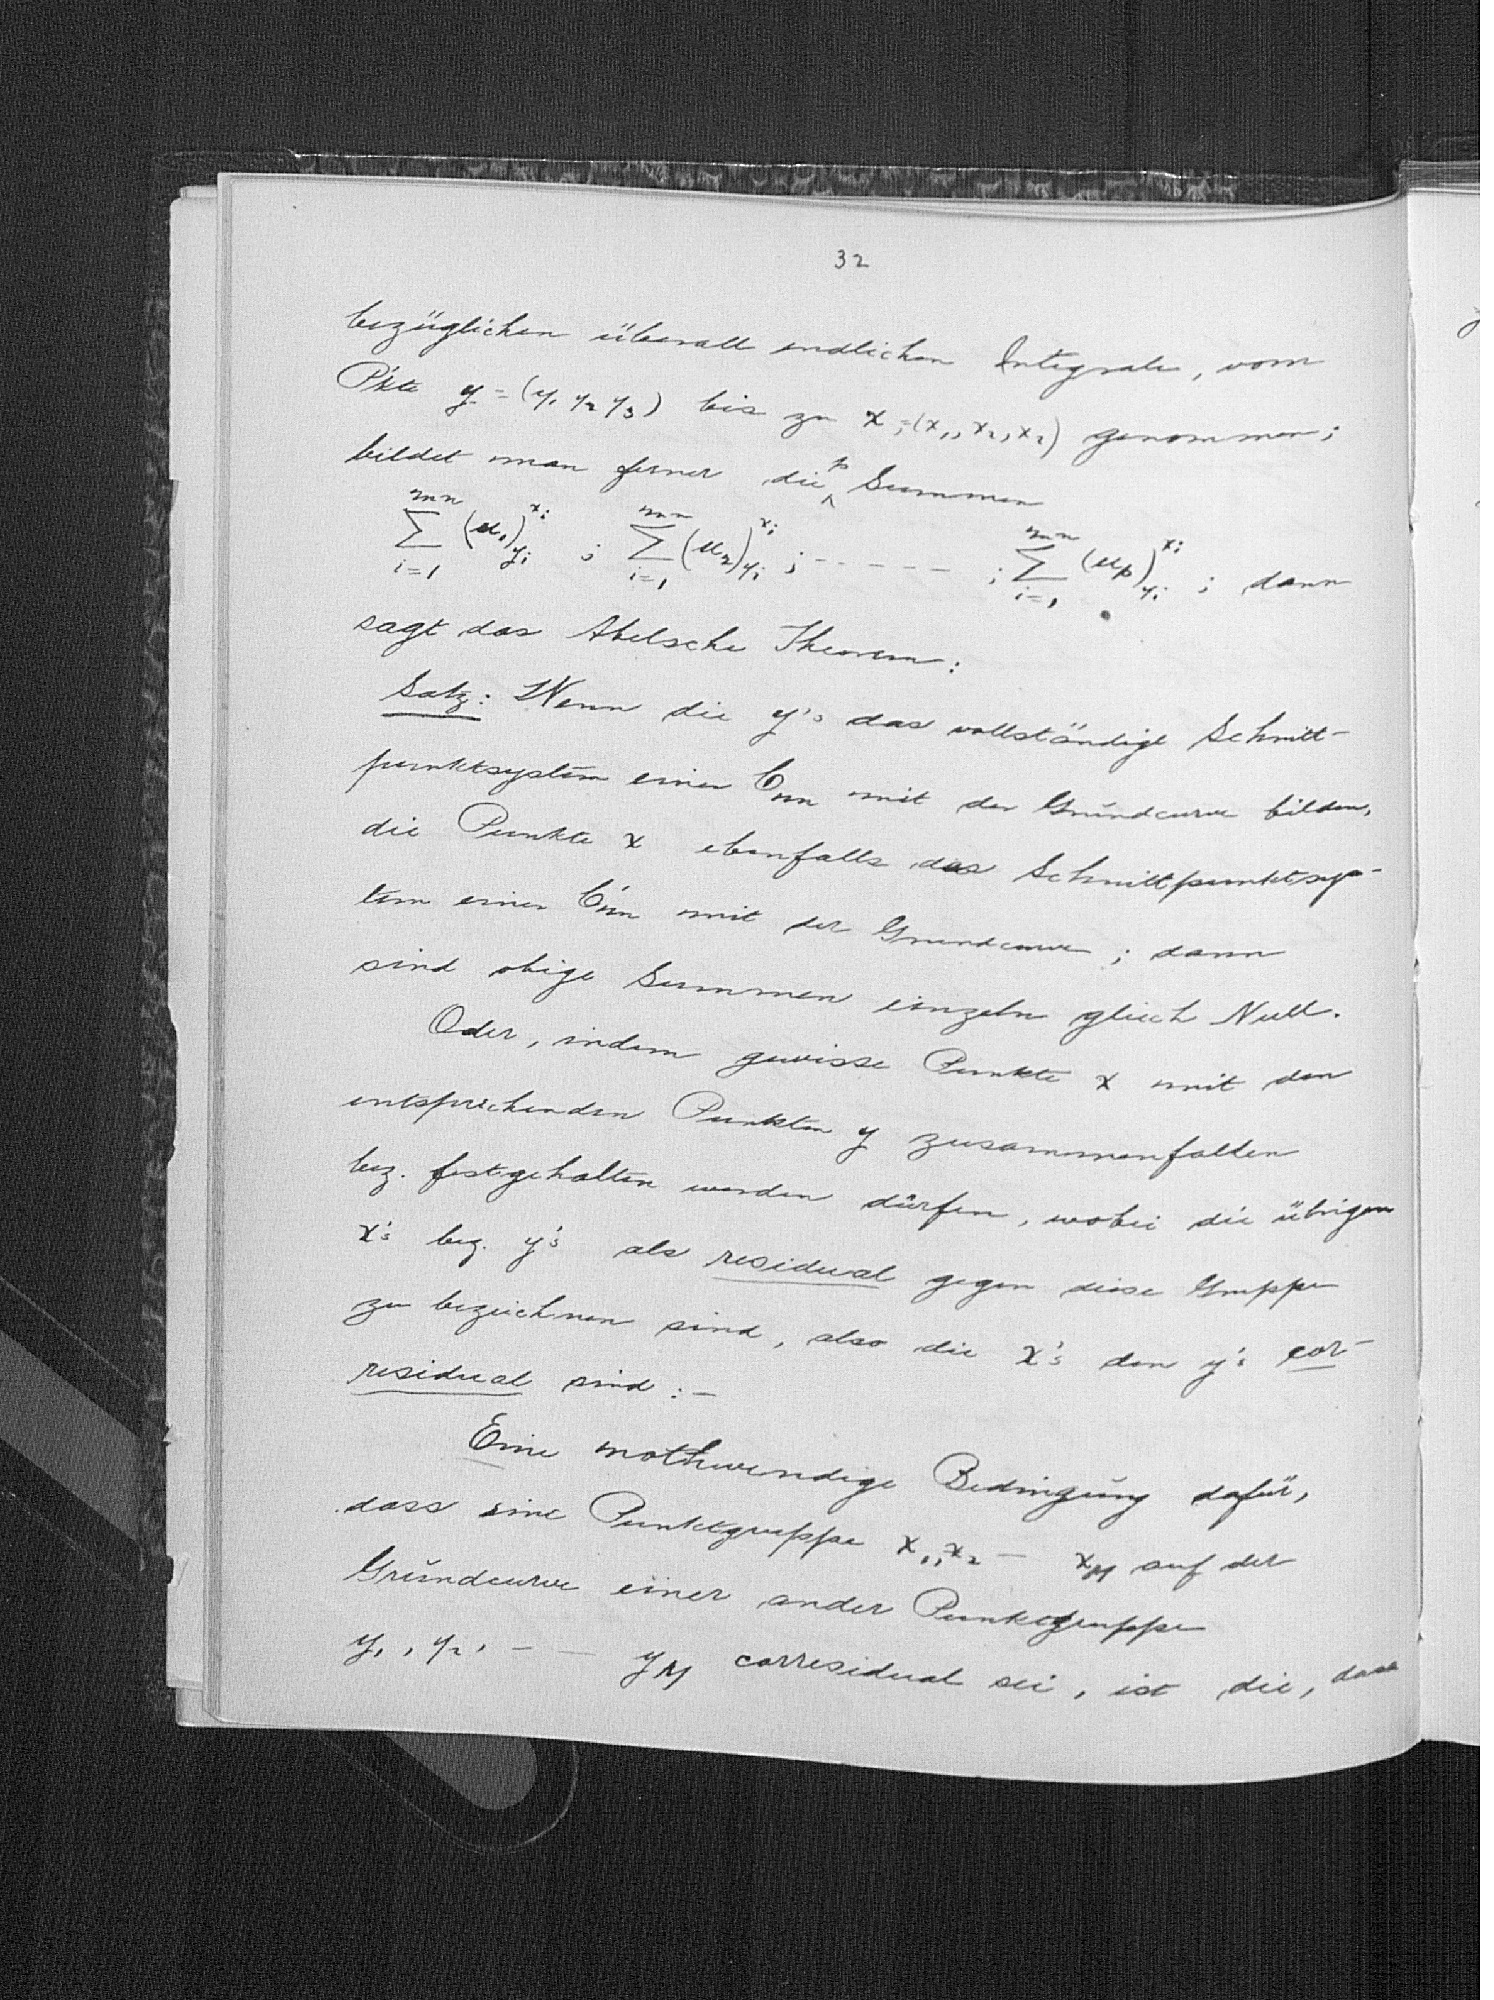 32
bezüglichen überall endlichen Integrale, vom
P'kte y = (y₁ y₂ y₃) bis zu x = (x₁, x₂, x₂) genommen;
bildet man ferner die p Summen
∑_{i=1}^{mn} (u₁)_{y_i}^{x_i} ; ∑_{i=1}^{mn} (u₂)_{y_i}^{x_i} ; - - - - - - ; ∑_{i=1}^{mn} (u_p)_{y_i}^{x_i} ; dann
sagt das Abelsche Theorem:
Satz: Wenn die y's das vollständige Schnitt-
punktsystem einer C_m mit der Grundcurve bilden,
die Punkte x ebenfalls das Schnittpunktsys-
tem einer C'_m mit der Grundcurve; dann
sind obige Summen einzeln gleich Null.
Oder, indem gewisse Punkte x mit den
entsprechenden Punkten y zusammenfallen
bez. festgehalten werden dürfen, wobei die übrigen
x's bez. y's als residual gegen diese Gruppe
zu bezeichnen sind, also die x's den y's cor-
residual sind: —
Eine nothwendige Bedingung dafür,
dass eine Punktgruppe x₁, x₂ — x_M auf der
Grundcurve einer ander Punktgruppe
y₁, y₂, — — y_M corresidual sei, ist die, dass